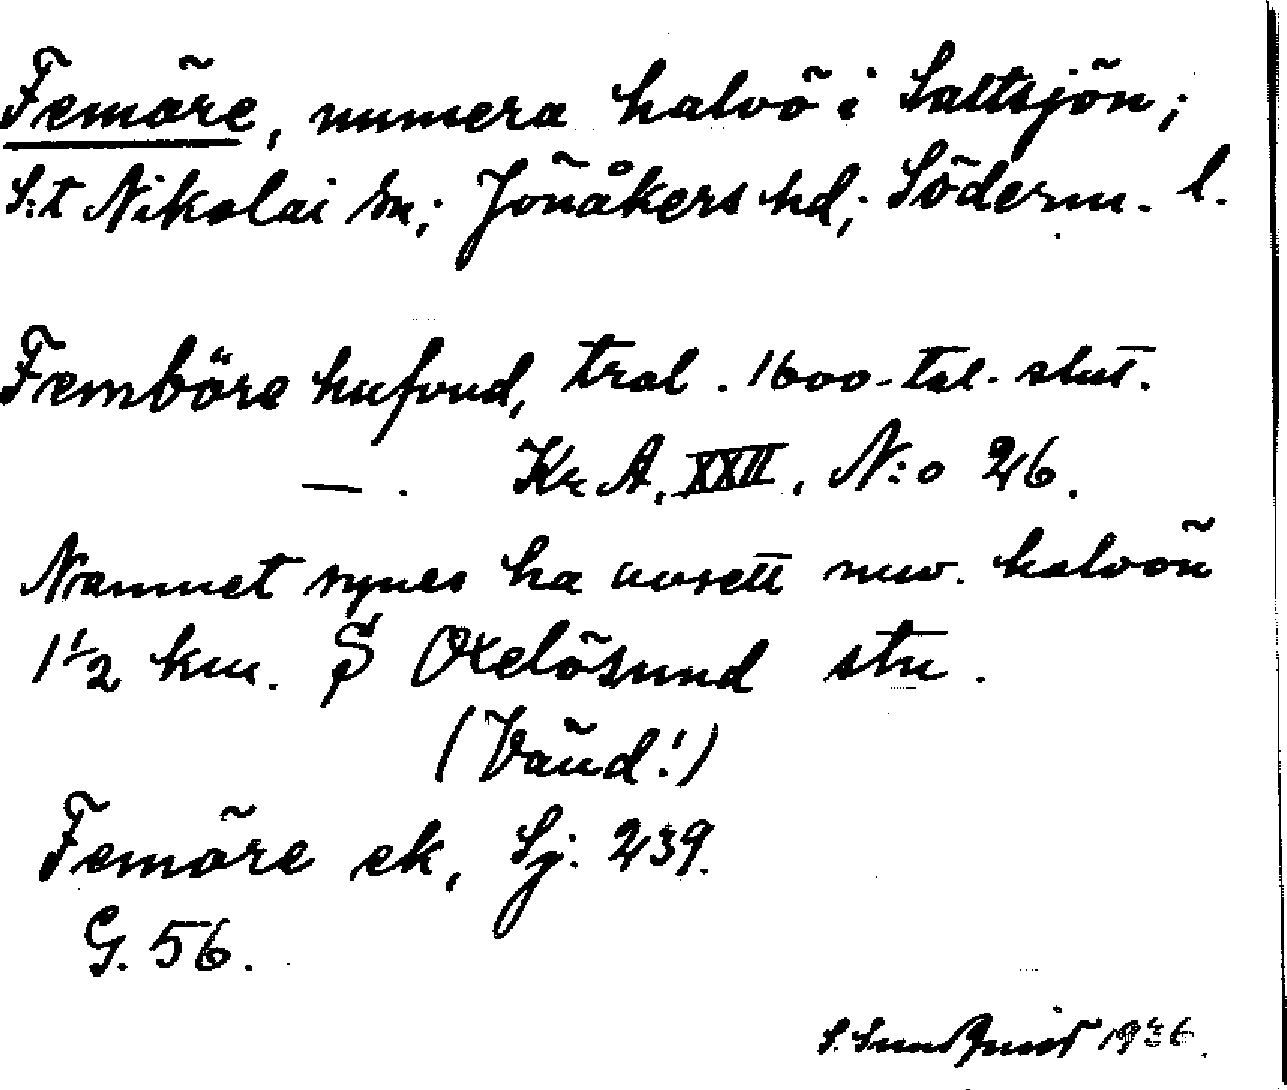 Femöre, numera halvö i Saltsjön;
S:t Nikolai sn; Jönåkers hd; Söderm. l.
Femböre hufvud, trol. 1600-tal. slut.
— . Kr A, XXII, N:o 26.
Namnet synes ha avsett nuv. halvön
1½ km. S Oxelösund stn.
(Vänd!)
Femöre ek, Sj. 239.
G. 56.
S. Sundquist 1936.